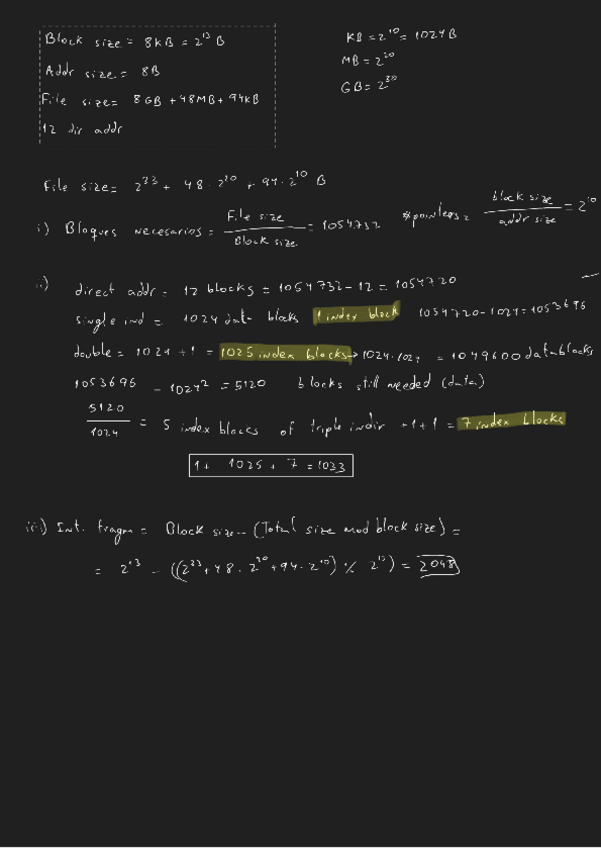 Block size = 8KB = 2^13 B
Addr size = 8B
File size = 8GB + 48MB + 94KB
12 dir addr
KB = 2^10 = 1024B
MB = 2^20
GB = 2^30
File size = 2^33 + 48 · 2^20 + 94 · 2^10 B
i) Bloques necesarios = File size / Block size = 1054732 #pointers = block size / addr size = 2^10
ii) direct addr = 12 blocks = 1054732 - 12 = 1054720
single ind = 1024 data blocks 1 index block 1054720 - 1024 = 1053696
double = 1024 + 1 = 1025 index blocks → 1024 · 1024 = 1049600 data blocks
1053696 - 1024^2 = 5120 blocks still needed (data)
5120 / 1024 = 5 index blocks of triple indir + 1 + 1 = 7 index blocks
1 + 1025 + 7 = 1033
iii) Int. fragm = Block size - (Total size mod block size) =
= 2^13 - ((2^33 + 48 · 2^20 + 94 · 2^10) % 2^13) = 2048